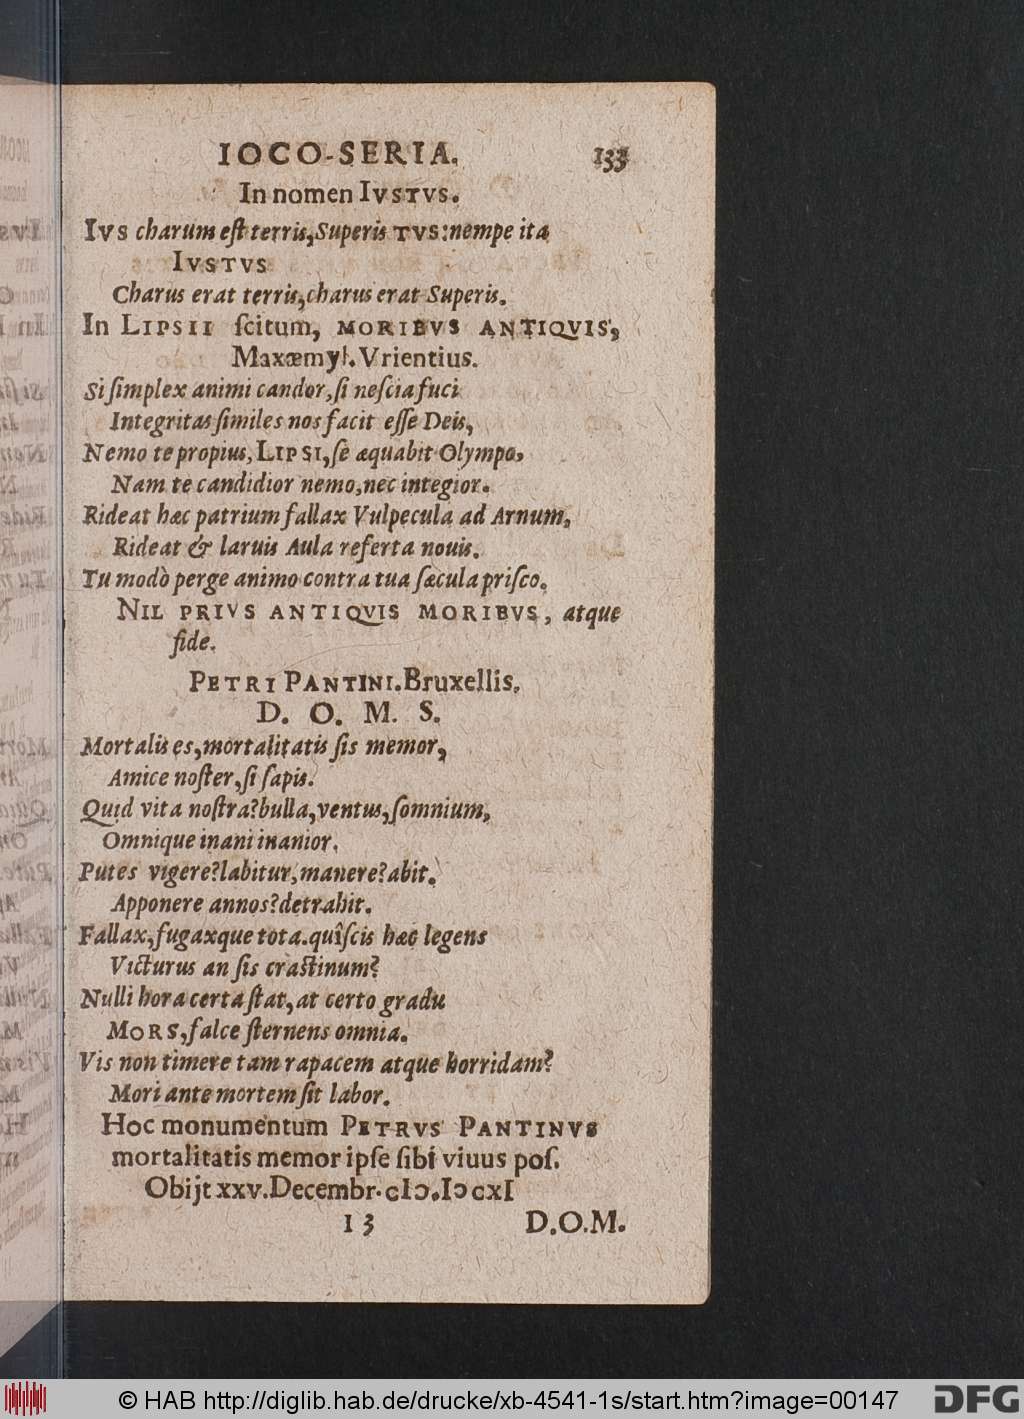 IOCO-SERIA. 133
In nomen IVSTVS.
IVS charum eſt terris, Superis TVS: nempe ita
IVSTVS
Charus erat terris, charus erat Superis.
In LIPSII ſcitum, MORIBVS ANTIQVIS,
Maxæmyl. Vrientius.
Si ſimplex animi candor, ſi neſcia fuci
Integritas ſimiles nos facit eſſe Deis,
Nemo te propius, LIPSI, ſe æquabit Olympo,
Nam te candidior nemo, nec integior.
Rideat hæc patrium fallax Vulpecula ad Arnum,
Rideat & laruis Aula referta nouis.
Tu modò perge animo contra tua ſæcula priſco.
NIL PRIVS ANTIQVIS MORIBVS, atque
fide.
PETRI PANTINI. Bruxellis.
D. O. M. S.
Mortalis es, mortalitatis ſis memor,
Amice noſter, ſi ſapis.
Quid vita noſtra? bulla, ventus, ſomnium,
Omnique inani inanior.
Putes vigere? labitur, manere? abit.
Apponere annos? detrahit.
Fallax, fugaxque tota. quîſcis hæc legens
Victurus an ſis craſtinum?
Nulli hora certa ſtat, at certo gradu
MORS, falce ſternens omnia.
Vis non timere tam rapacem atque horridam?
Mori ante mortem ſit labor.
Hoc monumentum PETRVS PANTINVS
mortalitatis memor ipſe ſibi viuus poſ.
Obijt xxv. Decembr. cIↄ.Iↄcxi
I 3 D.O.M.
© HAB http://diglib.hab.de/drucke/xb-4541-1s/start.htm?image=00147
DFG